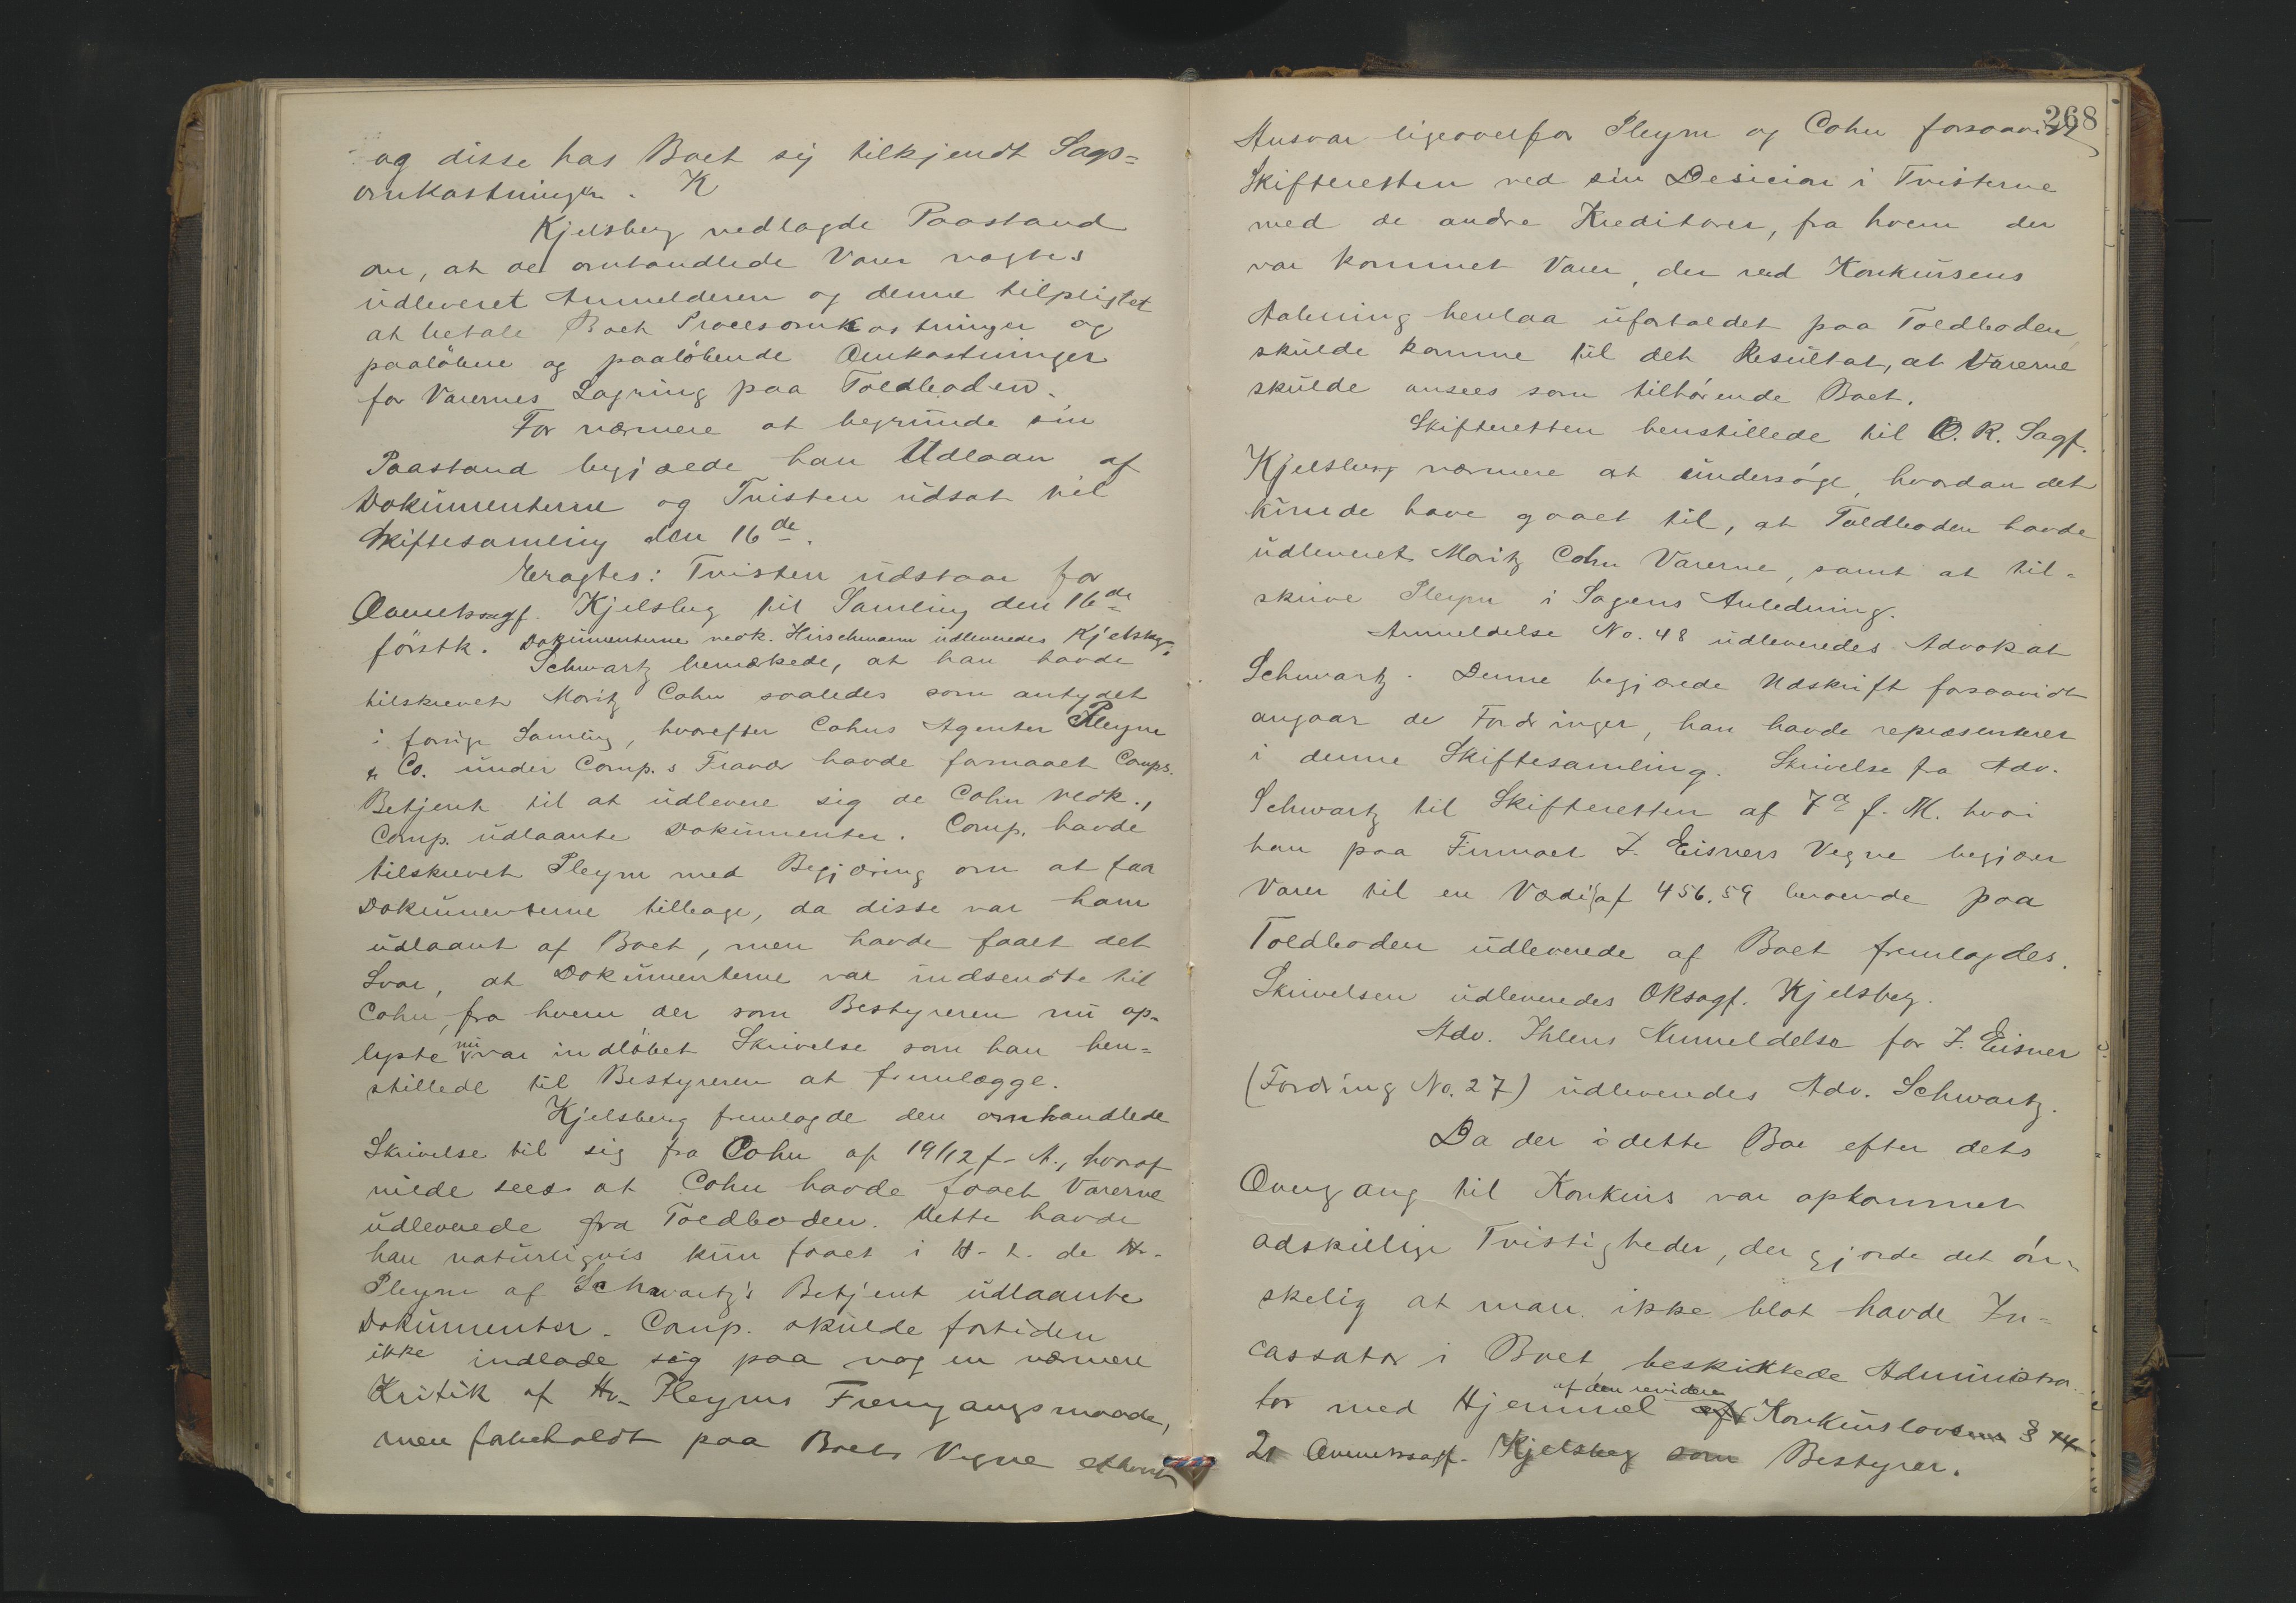 og disse har Boet sig tilkjendt Sags=
omkostninger. K
Kjelsberg nedlagde Paastand
om, at de omhandlede Varer nægtes
udleveret Anmelderen og denne tilpligtet
at betale Boet Procesomkostninger og
paaløbne og paaløbende Omkostninger
for Varernes Lagring paa Toldboden.
For nærmere at begrunde sin
Paastand begjærede han Udlaan af
Dokumenterne og Tvisten udsat til
Skiftesamling den 16de.
Eragtes: Tvisten udstaar for
Overretssagf. Kjelsberg til Samling den 16de
förstk. Dokumenterne vedk. Hirschmann udleveredes Kjelsberg.
Schwartz bemærkede, at han havde
tilskrevet Moritz Cohn saaledes som antydet
i forrige Samling, hvorefter Cohns Agenter Pleym
& Co. under Comp.s Fravær havde formaaet Comps.
Betjent til at udlevere sig de Cohn vedk.,
Comp. udlaante Dokumenter. Comp. havde
tilskrevet Pleym med Begjæring om at faa
Dokumenterne tilbage, da disse var ham
udlaant af Boet, men havde faaet det
Svar, at Dokumenterne var indsendte til
Cohn, fra hvem der som Bestyreren nu op-
lyste nu var indløbet Skrivelse som han hen=
stillede til Bestyreren at fremlægge.
Kjelsberg fremlagde den omhandlede
Skrivelse til sig fra Cohn af 19/12 f. A., hvoraf
vilde sees at Cohn havde faaet Varerne
udleverede fra Toldboden. Dette havde
han naturligvis kun faaet i H. t. de Hr.
Pleym af Schwartz's Betjent udlaante
Dokumenter. Comp. skulde fortiden
ikke indlade sig paa nogen nærmere
Kritik af Hr. Pleyms Fremgangsmaade,
men forbeholdt paa Boets Vegne ethvert
268
Ansvar ligeoverfor Pleym og Cohn forsaavidt
Skifteretten ved sin Desicion i Tvisterne
med de andre Kreditorer, fra hvem der
var kommet Varer, der ved Konkursens
Aabning henlaa ufortoldet paa Toldboden,
skulde komme til det Resultat, at Varerne
skulde ansees som tilhørende Boet.
Skifteretten henstillede til O. R. Sagf.
Kjelsberg nærmere at undersøge, hvordan det
kunde have gaaet til, at Toldboden havde
udleveret Moritz Cohn Varerne, samt at til-
skrive Pleym i Sagens Anledning.
Anmeldelse No. 48 udleveredes Advokat
Schwartz. Denne begjærede Udskrift forsaavidt
angaar de Fordringer, han havde repræsenteret
i denne Skiftesamling. Skrivelse fra Adv.
Schwartz til Skifteretten af 7de f. M. hvori
han paa Firmaet J. Eisners Vegne begjærer
Varer til en Værdi af 456.59 beroende paa
Toldboden udleverede af Boet fremlagdes.
Skrivelsen udleveredes ORsagf. Kjelsberg.
Adv. Ihlens Anmeldelse for J. Eisner
(Fordring No. 27) udleveredes Adv. Schwartz.
Da der i dette Bo efter dets
Overgang til Konkurs var opkommet
adskillige Tvistigheder, der gjorde det øn-
skelig at man ikke blot havde In=
cassator i Boet, beskikkede Administra-
tor med Hjemmel af den revidere Konkurslovs § 14
21 Overretssagf. Kjelsberg som Bestyrer.